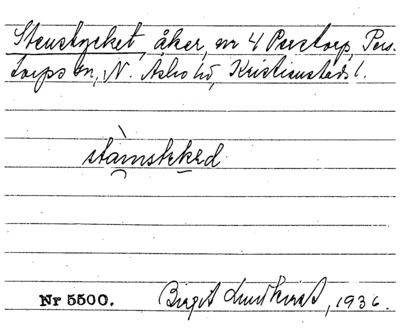 Stenstycket, åker, nr 4 Perstorp, Pers-
torps sn, N. Åsbo hd, Kristianstads l.
Nr 5500.
Birgit Lundkvist, 1936.